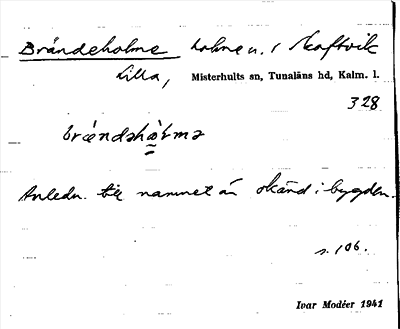 Brändeholme holme n. i Kaftvik
Lilla, Misterhults sn, Tunaläns hd, Kalm. l.
328
brǽndəhòlmə
Anledn. till namnet är okänd i bygden.
s. 106.
Ivar Modéer 1941